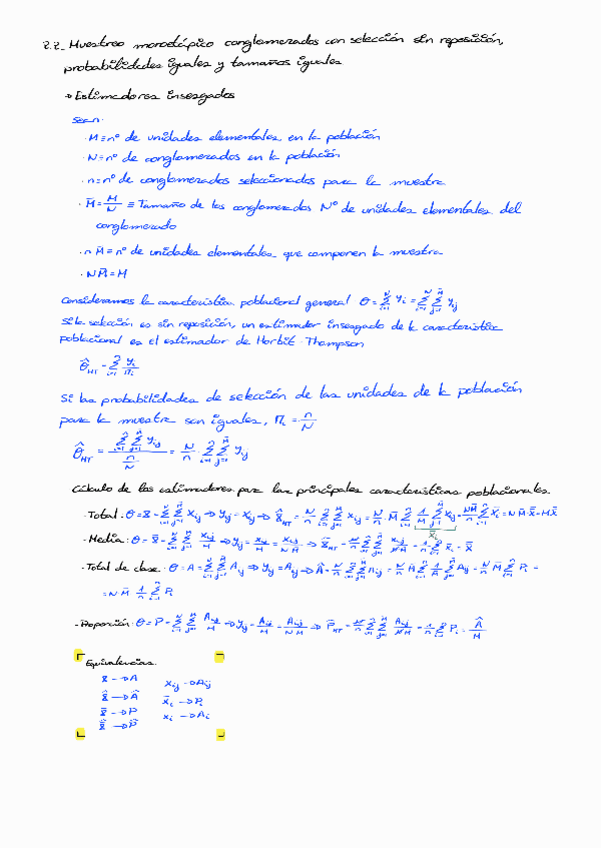 2.2_ Muestreo monoetápico conglomerados con selección sin reposición,
probabilidades iguales y tamaños iguales
→ Estimadores insesgados
Sean:
· M ≡ nº de unidades elementales en la población
· N = nº de conglomerados en la población
· n = nº de conglomerados seleccionados para la muestra
· M̄ = M/N ≡ Tamaño de los conglomerados Nº de unidades elementales del
conglomerado
· n M̄ = nº de unidades elementales que componen la muestra
· N M̄ = M
Consideramos la característica poblacional general θ = Σ_{i=1}^{N} Y_i = Σ_{i=1}^{N} Σ_{j=1}^{M̄} Y_ij
Si la selección es sin reposición, un estimador insesgado de la característica
poblacional es el estimador de Horbit-Thompson
θ̂_HT = Σ_{i=1}^{n} Y_i/π_i
Si las probabilidades de selección de las unidades de la población
para la muestra son iguales, π_i = n/N
θ̂_HT = (Σ_{i=1}^{n} Σ_{j=1}^{M̄} Y_ij)/(n/N) = N/n · Σ_{i=1}^{n} Σ_{j=1}^{M̄} Y_ij
Cálculo de los estimadores para las principales características poblacionales.
- Total: θ = X = Σ_{i=1}^{N} Σ_{j=1}^{M̄} X_ij → Y_ij = X_ij → X̂_HT = N/n Σ_{i=1}^{n} Σ_{j=1}^{M̄} X_ij = N/n · M̄ Σ_{i=1}^{n} 1/M̄ Σ_{j=1}^{M̄} X_ij = NM̄/n Σ_{i=1}^{n} X̄_i = N M̄ · x̄ = M x̄
X̄_i
- Media: θ = X̄ = Σ_{i=1}^{N} Σ_{j=1}^{M̄} X_ij/M → Y_ij = X_ij/M = X_ij/(N M̄) → X̄̂_HT = N/n Σ_{i=1}^{n} Σ_{j=1}^{M̄} X_ij/(N M̄) = 1/n Σ_{i=1}^{n} X̄_i = x̄
- Total de clase: θ = A = Σ_{i=1}^{N} Σ_{j=1}^{M̄} A_ij → Y_ij = A_ij → Â = N/n M̄ Σ_{i=1}^{n} 1/M̄ Σ_{j=1}^{M̄} A_ij = N/n M̄ Σ_{i=1}^{n} P_i =
= N M̄ 1/n Σ_{i=1}^{n} P_i
- Proporción: θ = P = Σ_{i=1}^{N} Σ_{j=1}^{M̄} A_ij/M → Y_ij = A_ij/M = A_ij/(N M̄) ⇒ P̂_HT = N/n Σ_{i=1}^{n} Σ_{j=1}^{M̄} A_ij/(N M̄) = 1/n Σ_{i=1}^{n} P_i = Â/M
Equivalencias.
X → A X_ij → A_ij
X̂ → Â X̄_i → P_i
X̄ → P X_i → A_i
X̄̂ → P̂